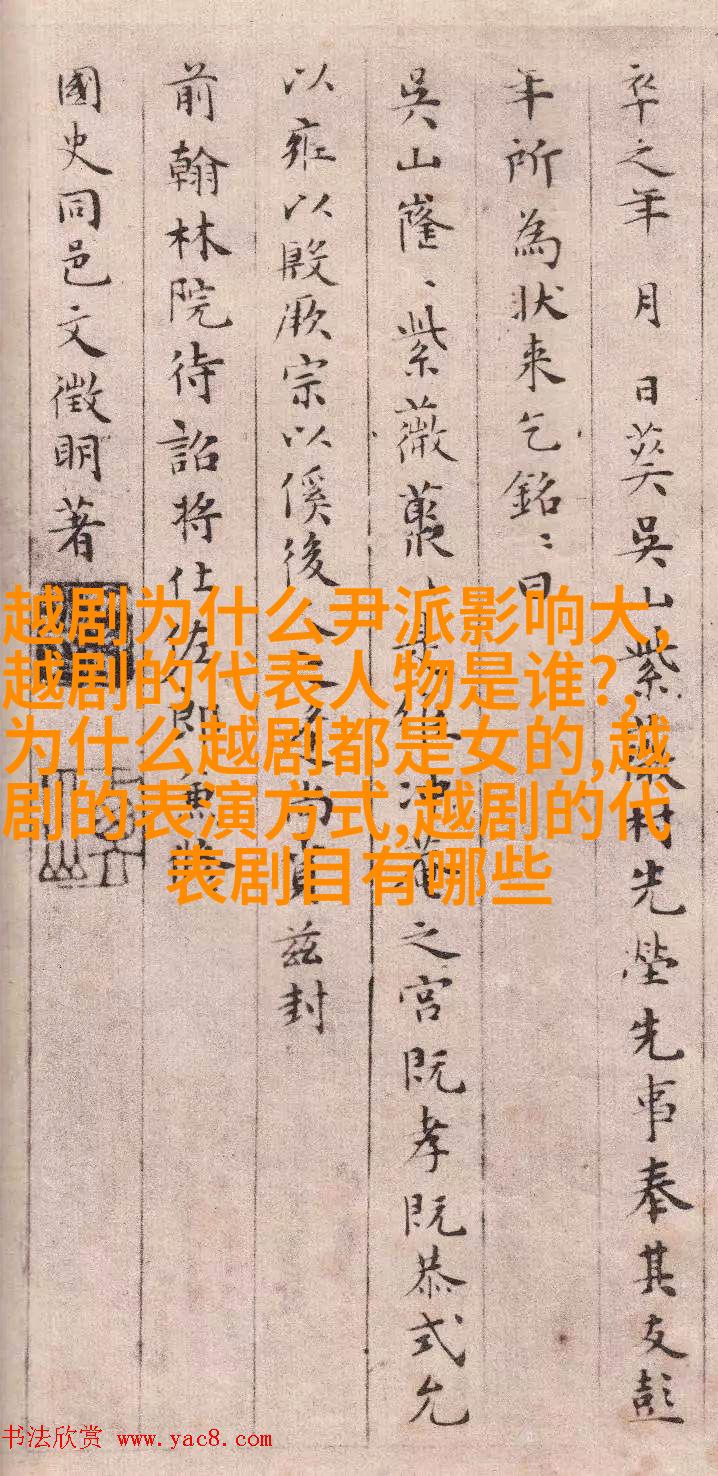 卒之年 月 日葬吳山紫薇村先塋先事奉其友彭
年所為狀来乞銘〻曰
吳山窿〻紫薇叢 之宮既孝既恭式允
以雍以殷厥宗以傒後 尚 兹封
前翰林院待詔將仕佐郎兼修
國史同邑文徵明著
越剧为什么尹派影响大,
越剧的代表人物是谁?,
为什么越剧都是女的,越
剧的表演方式,越剧的代
表剧目有哪些
书法欣赏 www.yac8.com